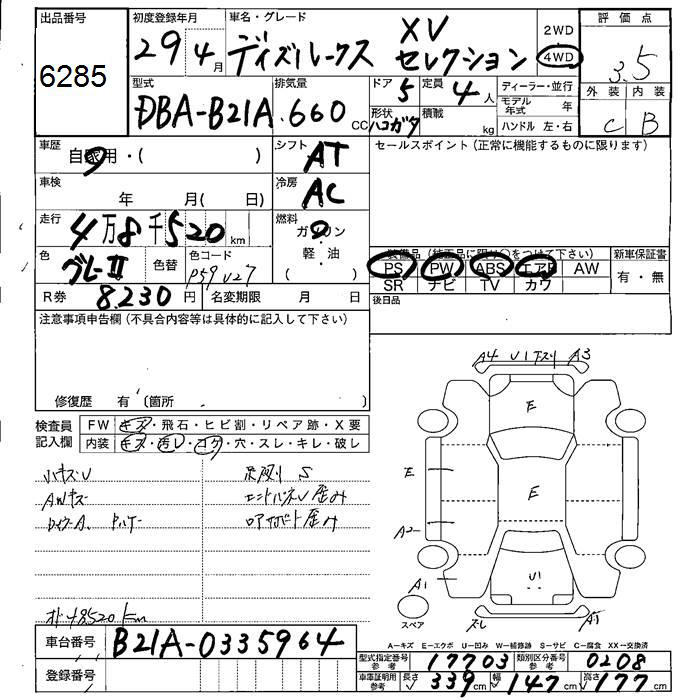 出品番号 6285
初度登録年月 29年 4月
車名・グレード ディズルークス XV セレクション
2WD 4WD
評価点 3.5
外装 C 内装 B
型式 DBA-B21A
排気量 660 CC
ドア 5 形状 ハコガタ
定員 4人 積載 kg
ディーラー・並行
モデル年式 年
ハンドル 左・右
車歴 自家用・( )
シフト AT
セールスポイント(正常に機能するものに限ります)
車検 年 月( 日)
冷房 AC
走行 4万8千520km
燃料 ガソリン 軽・油 ( )
色 グレーII 色替 色コード
R券 8.230円 名変期限 月 日
装備品(純正品に限り○をつけて下さい)
PS PW ABS エアB AW
SR ナビ TV カワ
新車保証書 有・無
後日品
注意事項申告欄(不具合内容等は具体的に記入して下さい)
修復歴 有 〔箇所 〕
検査員記入欄
FW キズ・飛石・ヒビ割・リペア跡・X要
内装 キズ・汚レ・コゲ・穴・スレ・キレ・破レ
ハキズU
Aルキズ
足廻り S
歪み
歪み
48520km
A4 U1 下スリ A3
E
E
E
A2
A1
U1
スペア
ズレ
A1
車台番号 B21A-0335964
登録番号
A-キズ E-エクボ U-凹み W-補修跡 S-サビ C-腐食 XX-交換済
型式指定番号参考 17703 類別区分番号参考 0208
車庫証明用参考 長さ 339cm 幅 147cm 高さ 177cm